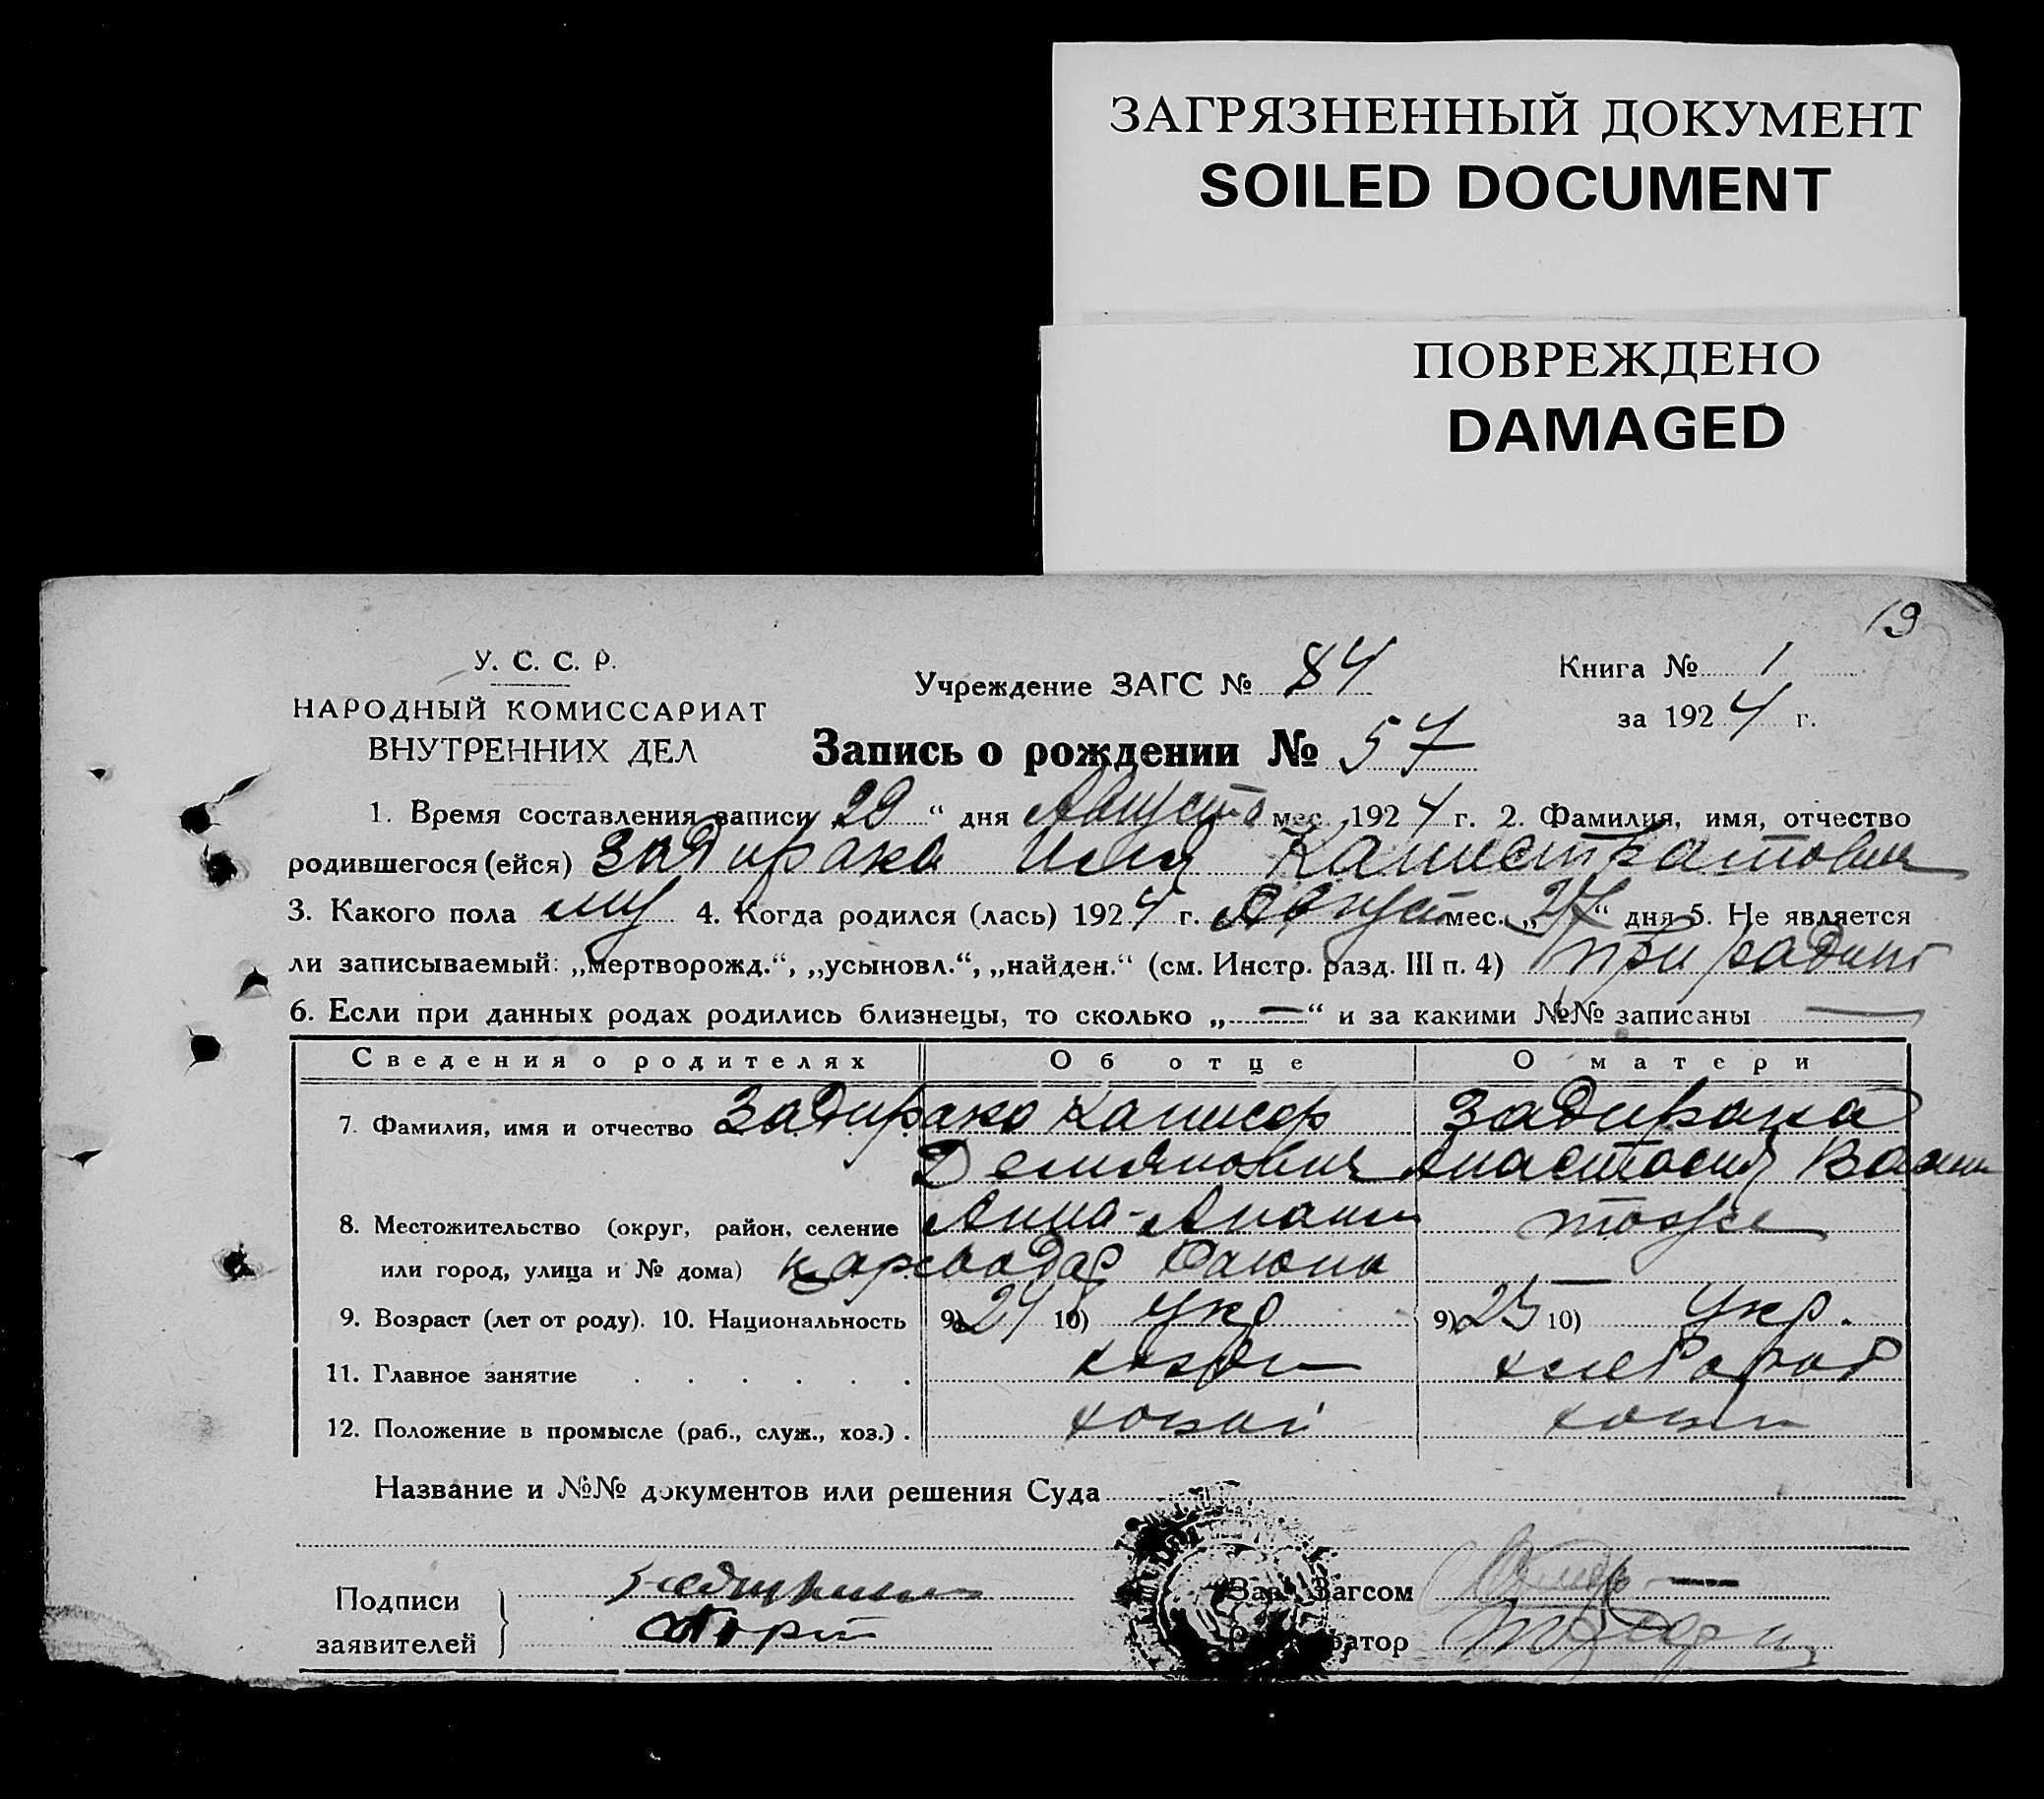 ЗАГРЯЗНЕННЫЙ ДОКУМЕНТ
SOILED DOCUMENT
ПОВРЕЖДЕНО
DAMAGED
19
У. С. С. Р.
НАРОДНЫЙ КОМИССАРИАТ
ВНУТРЕННИХ ДЕЛ
Учреждение ЗАГС № 84
Книга № 1
за 1924 г.
Запись о рождении № 57
1. Время составления записи „29“ дня Августа мес. 1924 г. 2. Фамилия, имя, отчество
родившегося (ейся) Задирака Илья Калистратович
3. Какого пола муж 4. Когда родился (лась) 1924 г. Август мес. „27“ дня 5. Не является
ли записываемый: „мертворожд.“, „усыновл.“, „найден.“ (см. Инстр. разд. III п. 4)
6. Если при данных родах родились близнецы, то сколько „—“ и за какими №№ записаны —
Сведения о родителях Об отце О матери
7. Фамилия, имя и отчество Задирако Задирака
Демянович Анастасия
8. Местожительство (округ, район, селение тоже
или город, улица и № дома) —
9. Возраст (лет от роду). 10. Национальность 9) 24 10) Укр 9) 25 10) Укр.
11. Главное занятие хлебороб
12. Положение в промысле (раб., служ., хоз.) . хозяй
Название и №№ документов или решения Суда
Подписи
заявителей
Зав. Загсом
Регистратор